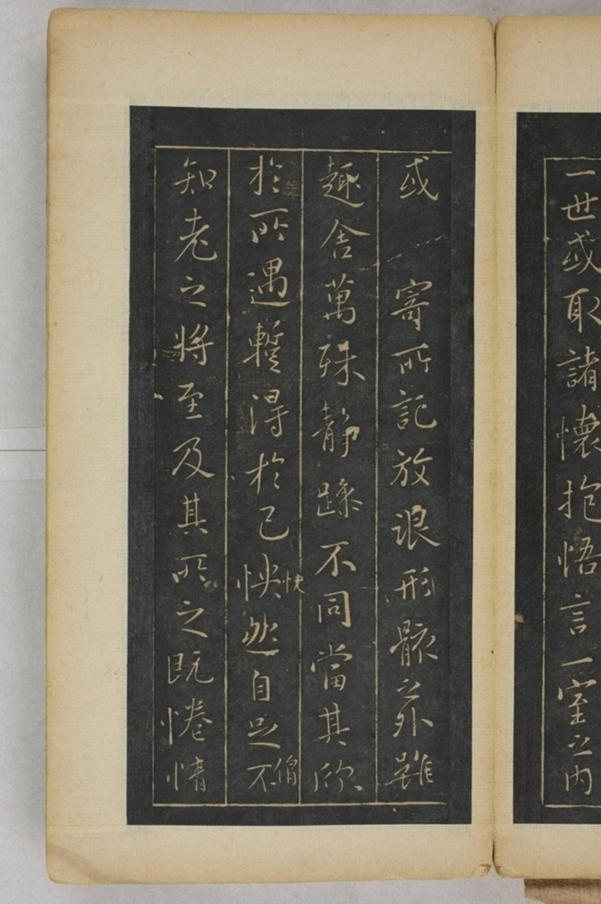 一世或取諸懷抱悟言一室之內
或 寄所託放浪形骸之外雖
趣舍萬殊静躁不同當其欣
於所遇蹔得於己怏快然自足僧不
知老之將至及其所之既惓情